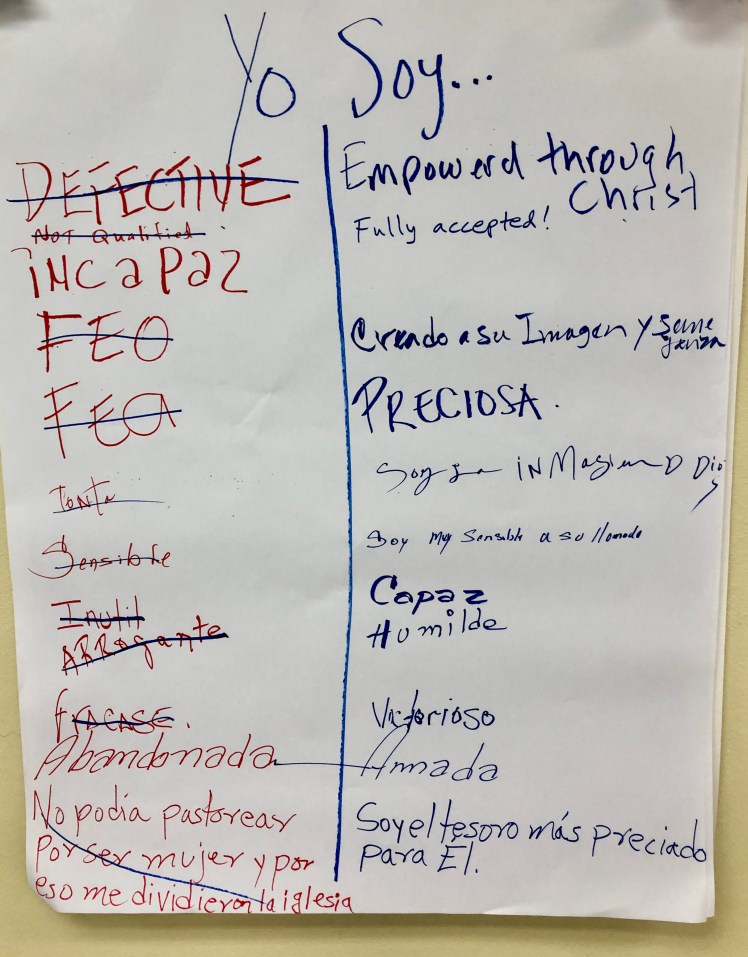 Yo Soy...
DEFECTIVE
Empowerd through
Christ
Not Qualified
Fully accepted!
iNCaPaZ
FEO
Creado a su Imagen y Seme
janza
FEA
PRECIOSA.
Tonta
Soy la iNMagien D Dios
Sensible
Soy muy Sensible a su llamado
Inutil
Capaz
ARROgante
Humilde
fRACASE.
Victorioso
Abandonada
Amada
No podía pastorear
Por ser mujer y por
eso me dividieron la iglesia
Soy el tesoro más preciado
para Él.